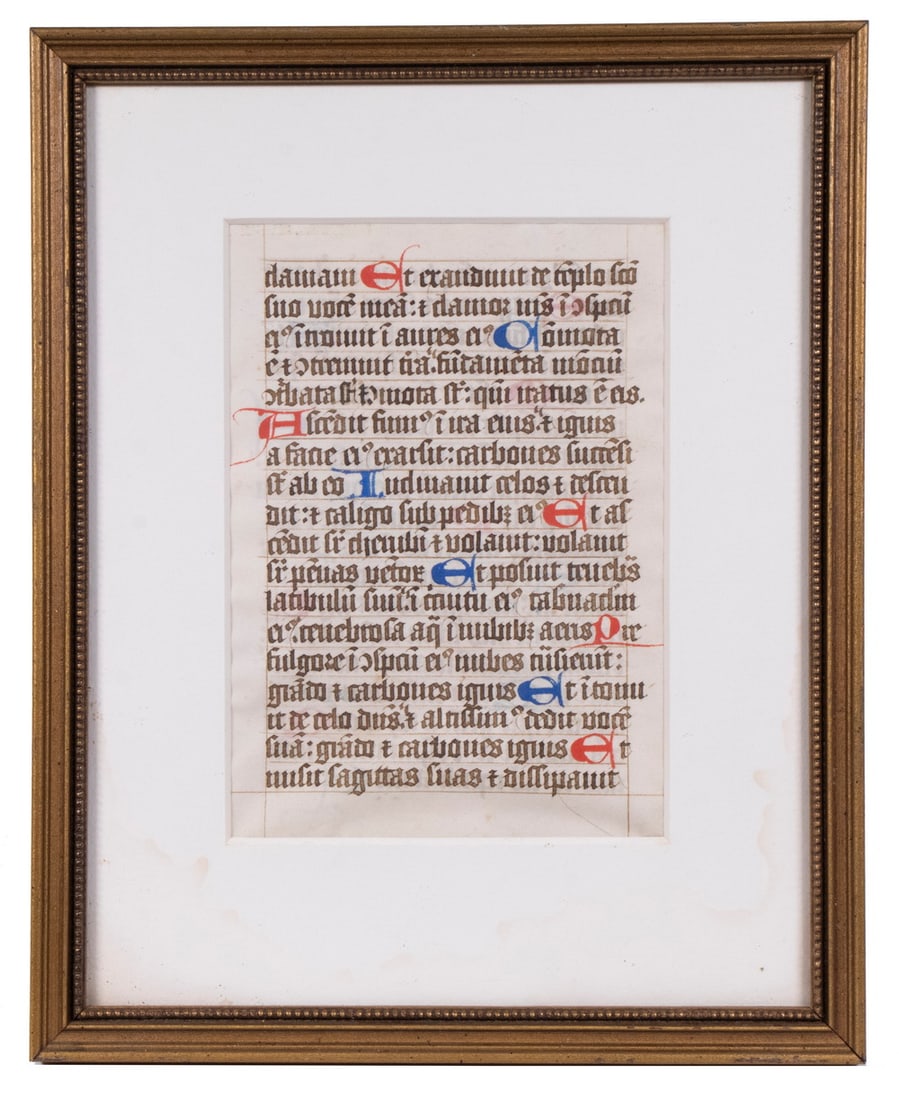 clamaui Et exaudiuit de tēplo scō
suo vocē meā: ⁊ clamor mꝰs ī ↄspcū
eiꝰ ītroiuit ī aures eiꝰ Cōmota
ē ⁊ ↄtremuit t̄ra: fūdamēta mōciū
ↄt̄bata st̄ ⁊ ↄmota st̄: qm̄ iratus ē eis.
Ascēdit fumꝰ ī ira eius: ⁊ ignis
a facie eiꝰ exarsit: carbones succēsi
st̄ ab eo Inclinauit celos ⁊ descen
dit: ⁊ caligo sub pedibꝫ eiꝰ Et as
cēdit sr̄ cherubī ⁊ volauit: volauit
sr̄ pēnas vētoꝝ Et posuit tenebꝰs
latibulū suū: ī c̄cuitu eiꝰ tab̄nac̄lm
eiꝰ: tenebrosa aq̄ ī nubibꝫ aeris Pre
fulgore ī ↄspcū eiꝰ nubes t̄nsierūt:
grādo ⁊ carbones ignis Et ītonu
it de celo dn̄s: ⁊ altissimꝰ dedit vocē
suā: grādo ⁊ carbones ignis Et
misit sagittas suas ⁊ dissipauit